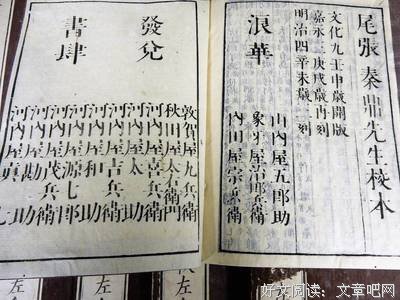 尾張 秦鼎先生校本
文化九壬申歳開版
嘉永三庚戌歳再刻
明治四辛未歳三刻
浪華
山内屋五郎助
象牙屋治郎兵衛
内田屋宗兵衛
發兌
書肆
敦賀屋九兵衛
秋田屋太右衛門
河内屋喜兵衛
河内屋太助
河内屋吉兵衛
河内屋和助
河内屋源七郎
河内屋茂兵衛
河内屋勘助
河内屋真七
好文阅读：文章吧网